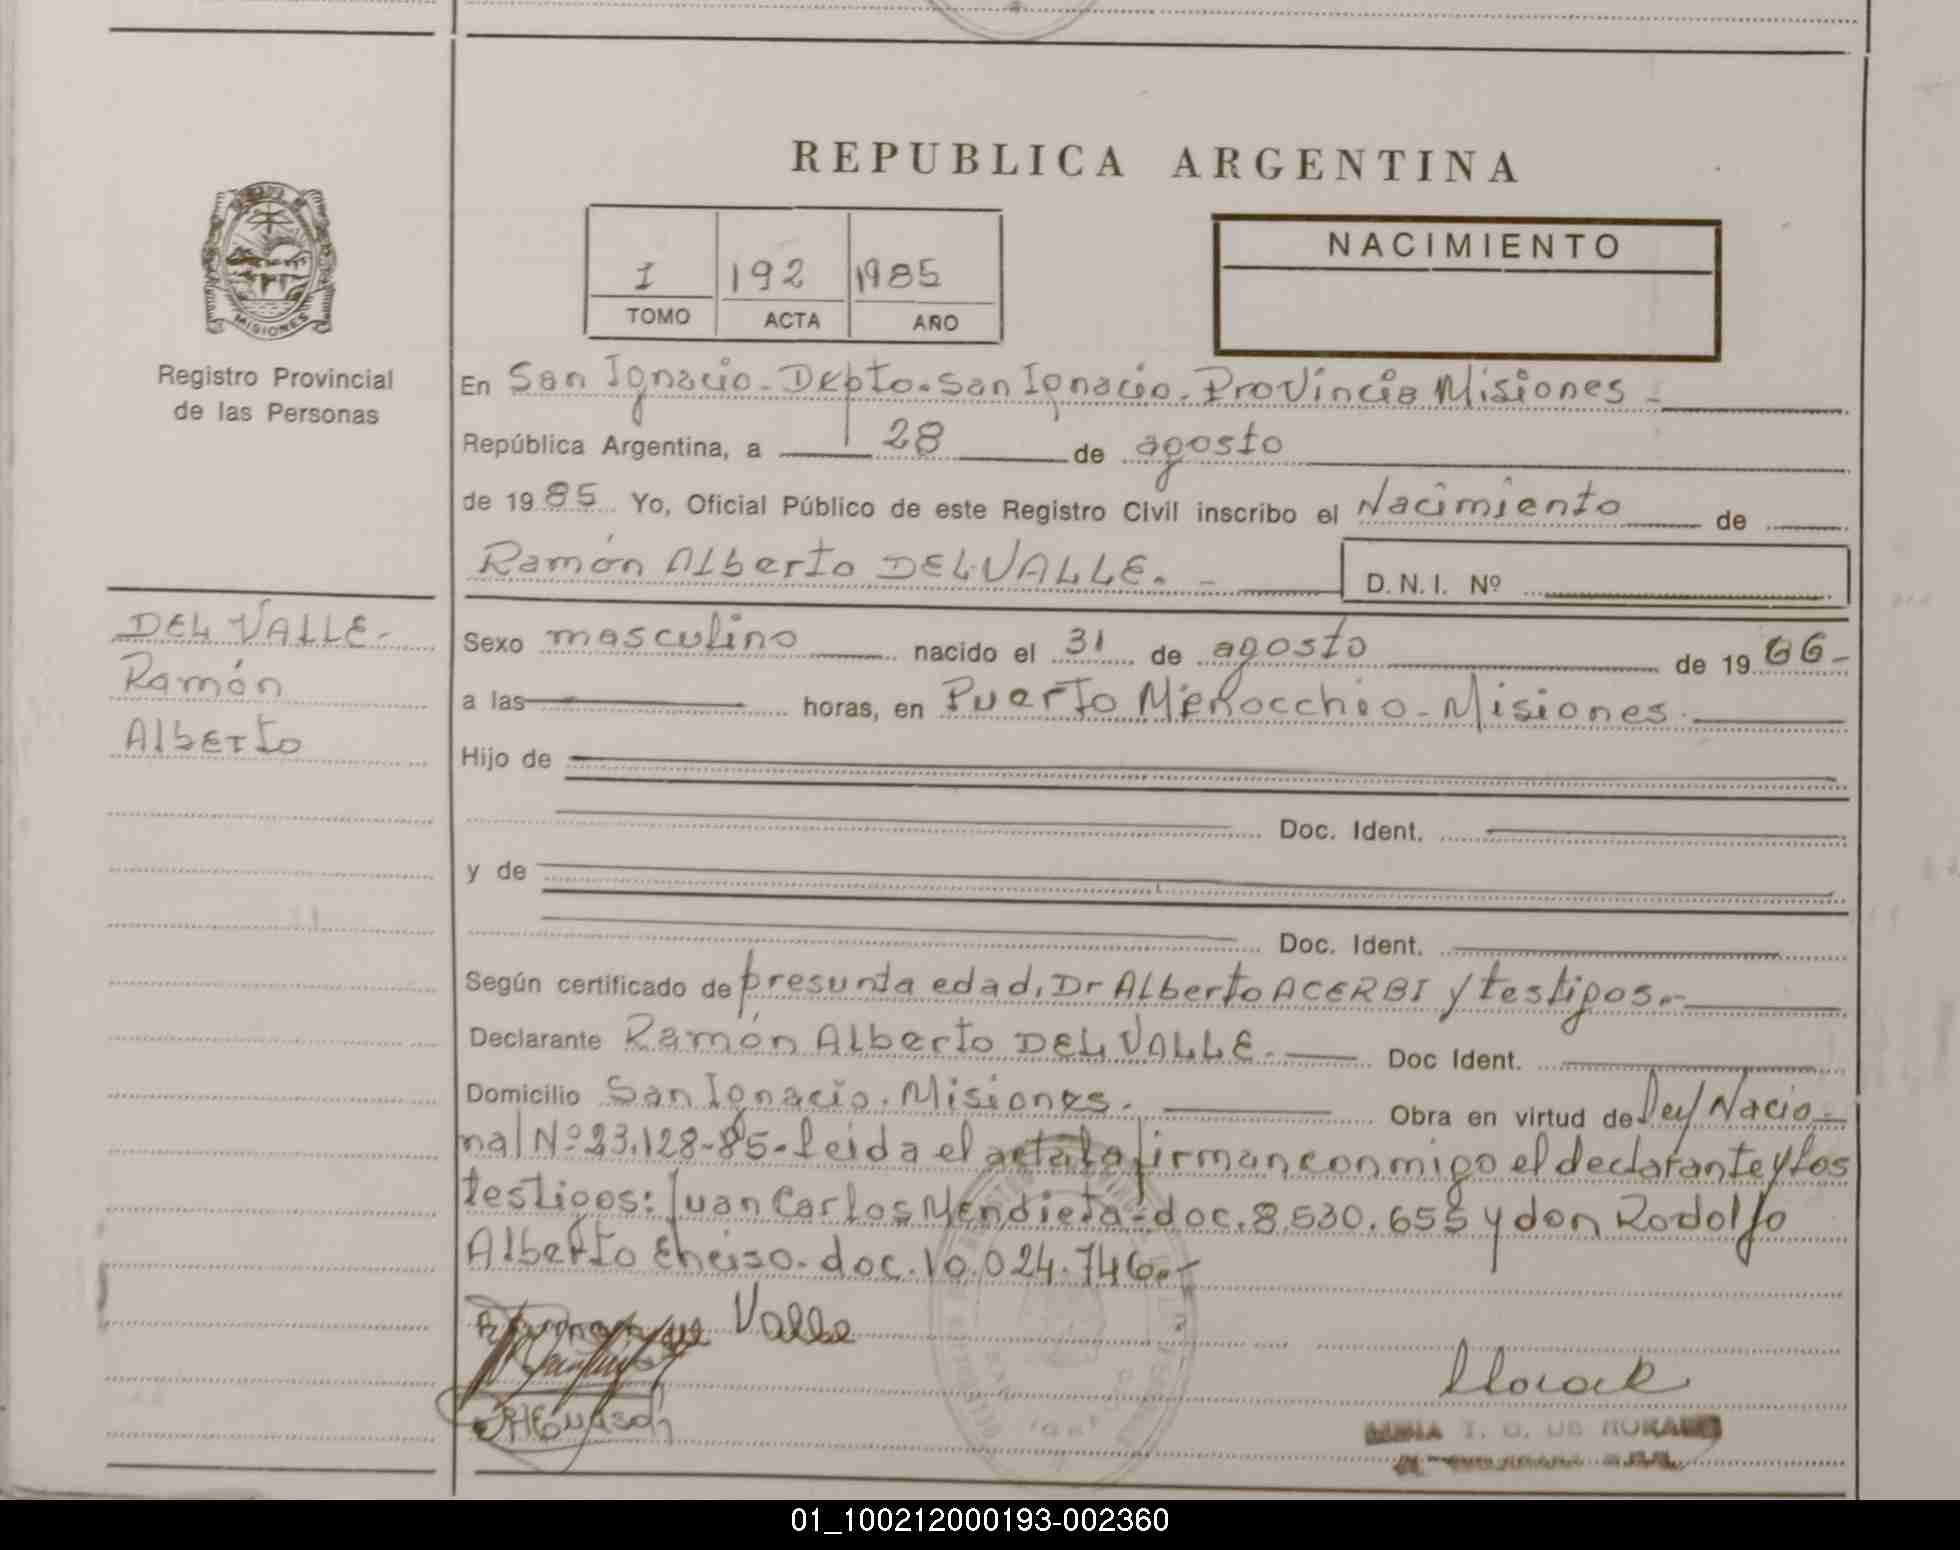 REPUBLICA ARGENTINA
I 192 1985
TOMO ACTA AÑO
NACIMIENTO
MISIONES
Registro Provincial
de las Personas
En San Ignacio - Depto. San Ignacio. Provincia Misiones -
República Argentina, a 28 de agosto
de 1985 Yo, Oficial Público de este Registro Civil inscribo el Nacimiento de
Ramón Alberto DEL VALLE. - D.N.I. Nº
DEL VALLE -
Ramón
Alberto
Sexo masculino nacido el 31 de agosto de 1966-
a las horas, en Puerto Menocchio - Misiones.
Hijo de
Doc. Ident.
y de
Doc. Ident.
Según certificado de presunta edad, Dr Alberto ACERBI y testigos.-
Declarante Ramón Alberto DEL VALLE. Doc Ident.
Domicilio San Ignacio. Misiones. Obra en virtud de Ley Nacio-
nal Nº 23.128-85- Leida el acta la firman conmigo el declarante y los
testigos: Juan Carlos Mendieta - doc. 8.530.655 y don Rodolfo
Alberto doc. 10.024.746.-
Valle
01_100212000193-002360